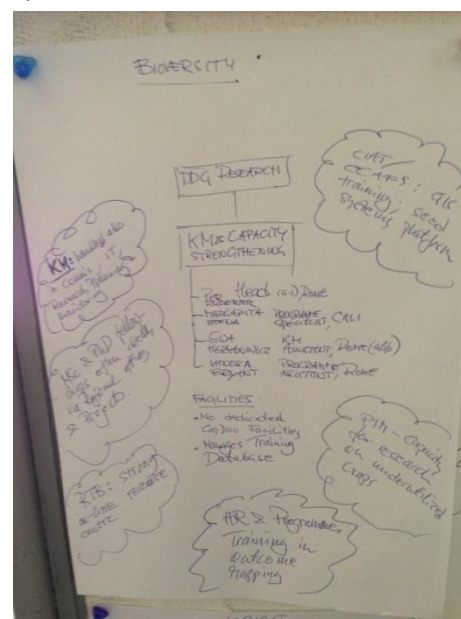 BIOVERSITY
DDG RESEARCH
KM & CAPACITY
STRENGTHENING
Head (a.i) Rome
MARGARITA PROGRAMME
SPECIALIST, CALI
EWA KM
HERMANOWICZ ASSISTANT, ROME
VANESSA PROGRAMME
ASSISTANT, ROME
FACILITIES:
• No dedicated
CapDev Facilities
• Manages Training
Database
CIAT/
CCAFS:
training; seed
systems platform
KM: handled also
IT
MSc & PhD fellow-
ships often directly
via regional offices
& Projects.
RTB: strong
on-line resource
PIM - Capacity
for research
on underutilized
Crops
HR & Programmes
Training in
Outcome
Mapping